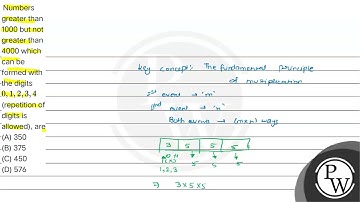 Numbers
greater than
1000 but not
greater than
4000 which
can be
formed with
the digits
0, 1, 2, 3, 4
(repetition of
digits is
allowed), are
(A) 350
(B) 375
(C) 450
(D) 576
Key concept: The fundamental principle
of multiplication
1st event → 'm'
event → 'n'
Both events → (m×n) ways
3 5 5 5
5 5 5
1,2,3
⇒ 3×5×5
PW